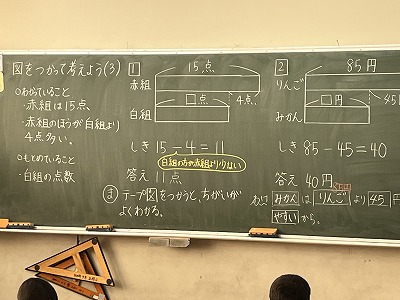 図をつかって考えよう(3)
○わかっていること
・赤組は15点
・赤組のほうが白組より
4点多い。
○もとめていること
・白組の点数
1
15点
赤組
4点
白組
□点
しき 15-4=11
白組の方が赤組より少ない
答え 11点
ま テープ図をつかうと、ちがいが
よくわかる。
2
85円
りんご
45円
みかん
□円
しき 85-45=40
答え 40円
みかん は りんご より 45 円
やすい から。